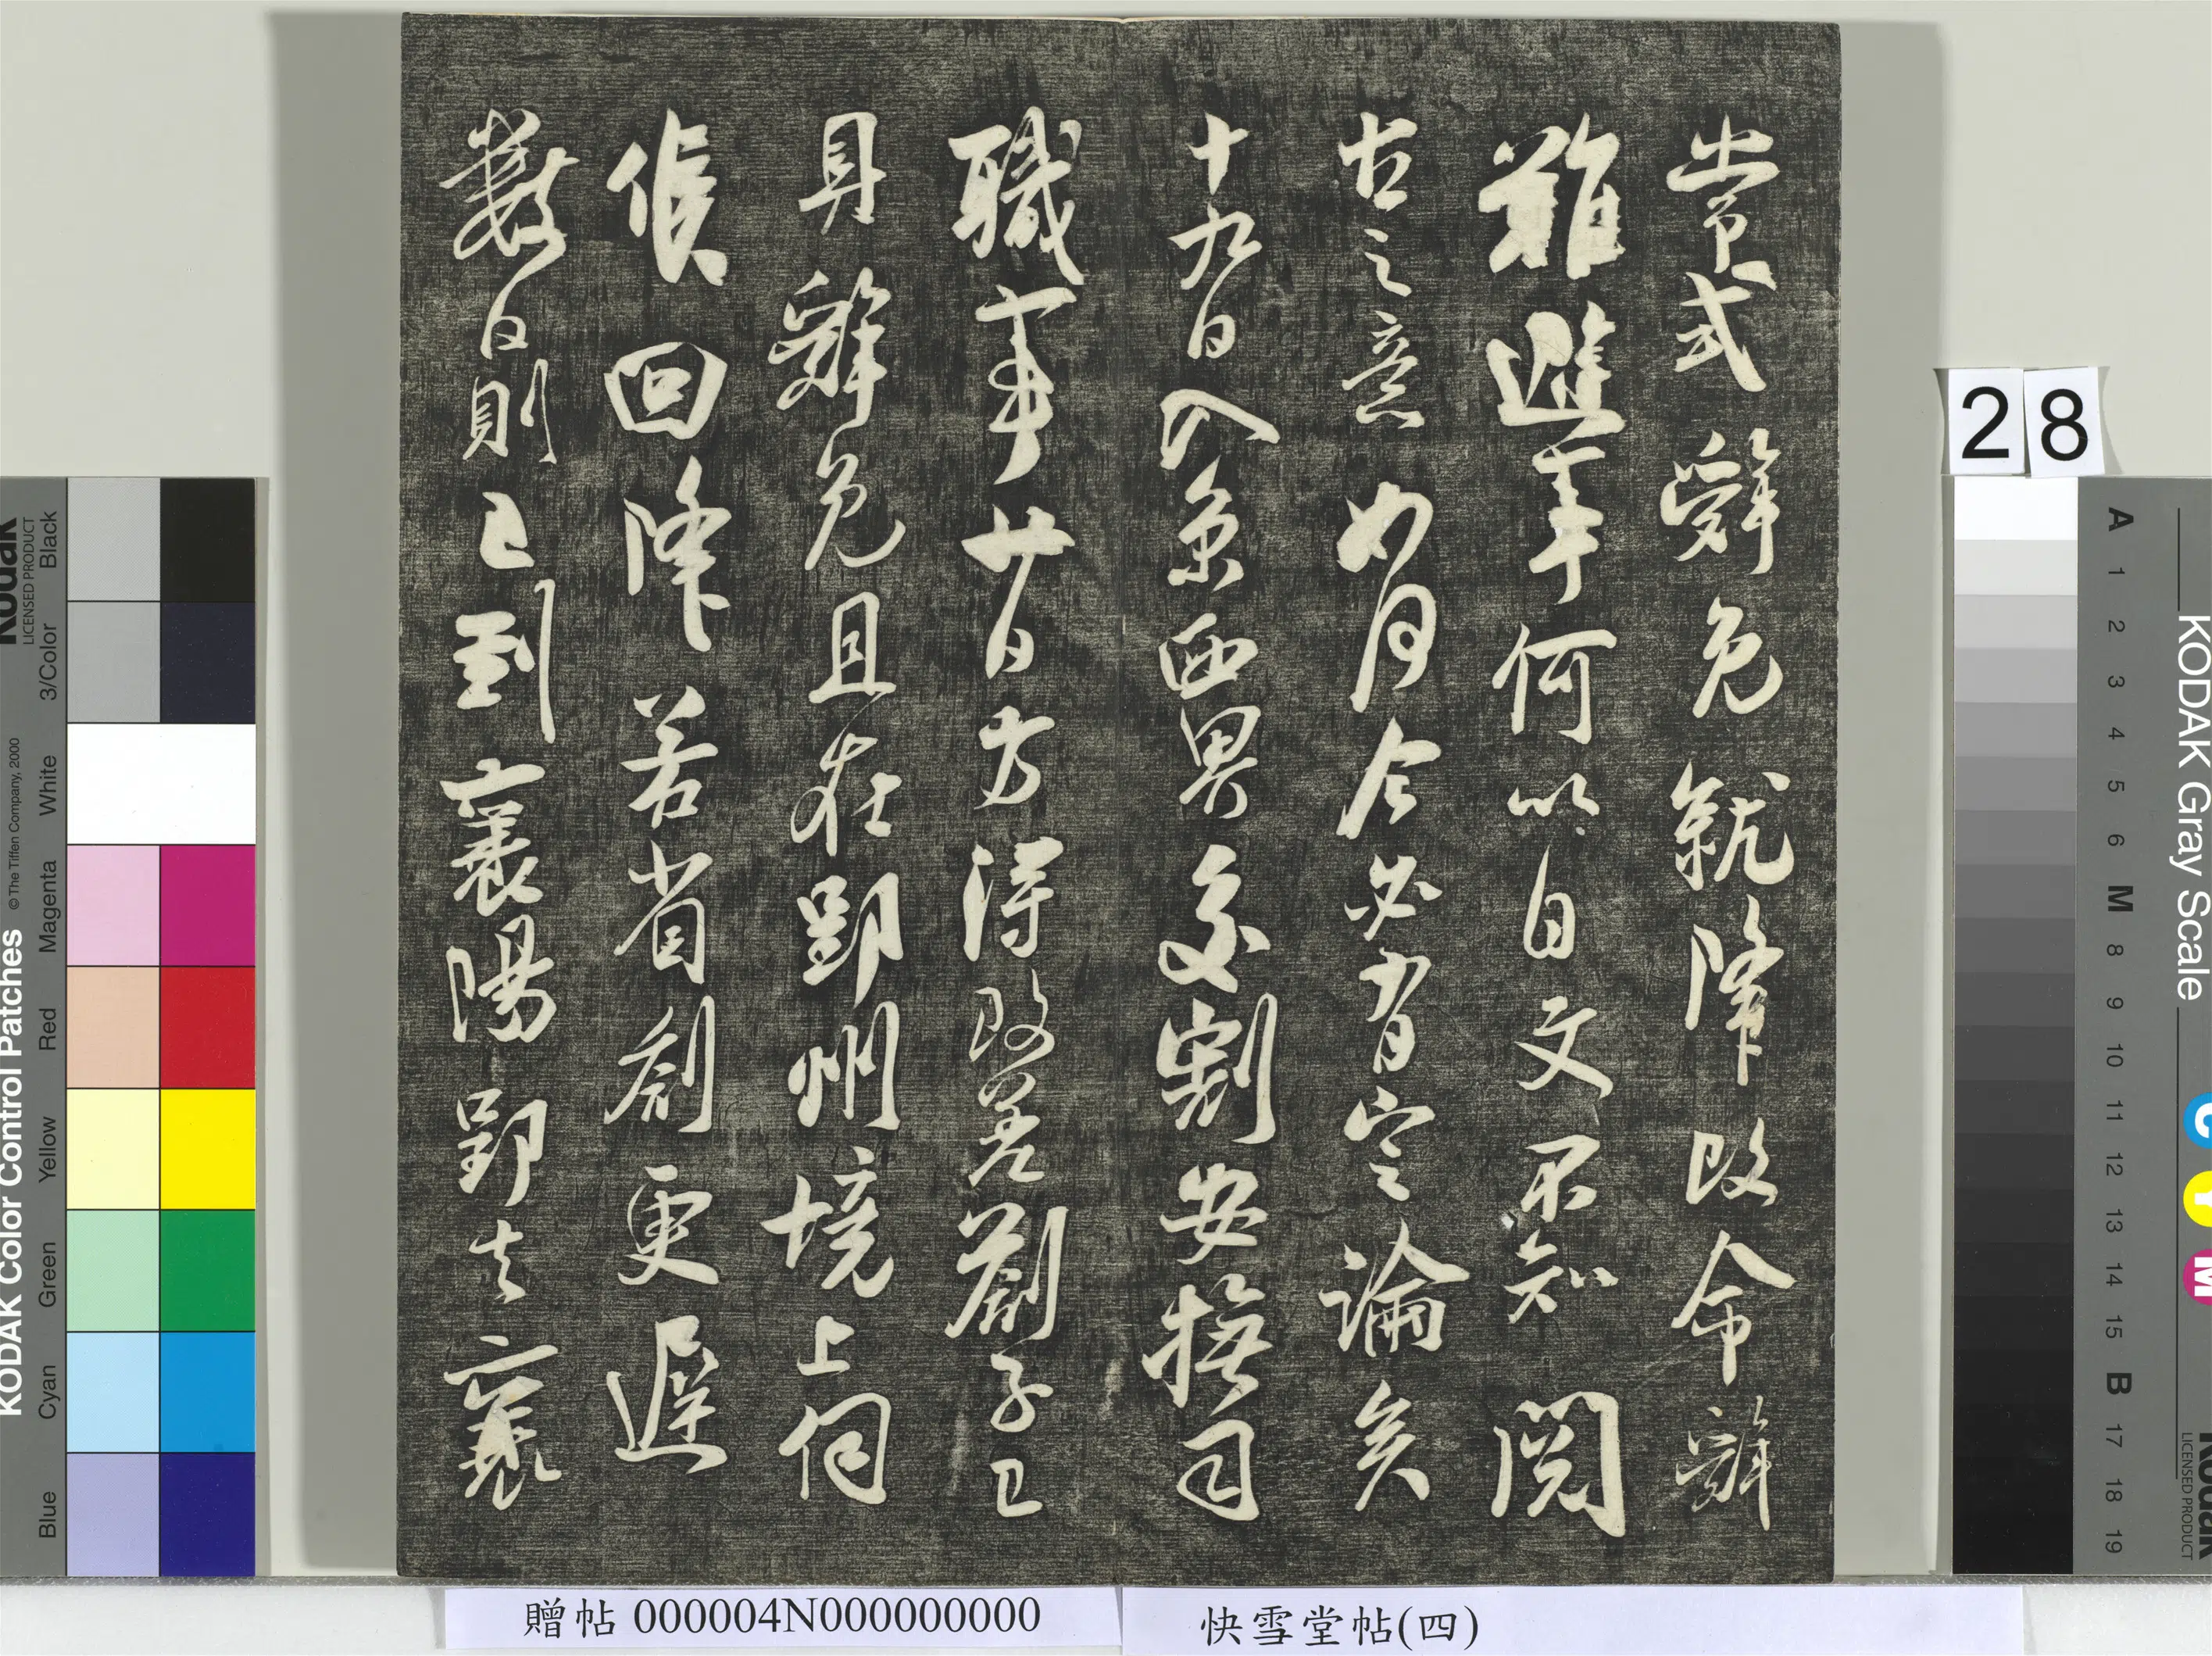 常式辭免就降改命辭
難避事何以自文不知閱
古之意如何今必有定論矣
十九日入京西界交割安撫司
職事廿日方得改差劄子已
具辭免且在郢州境上伺
候回降若省劄更遲
數日則已到襄陽郢去襄
28
贈帖 000004N000000000
快雪堂帖(四)
KODAK Color Control Patches
© The Tiffen Company, 2000
Kodak
LICENSED PRODUCT
Blue
Cyan
Green
Yellow
Red
Magenta
White
3/Color
Black
KODAK Gray Scale
Kodak
LICENSED PRODUCT
C
Y
M
A
1
2
3
4
5
6
M
8
9
10
11
12
13
14
15
B
17
18
19